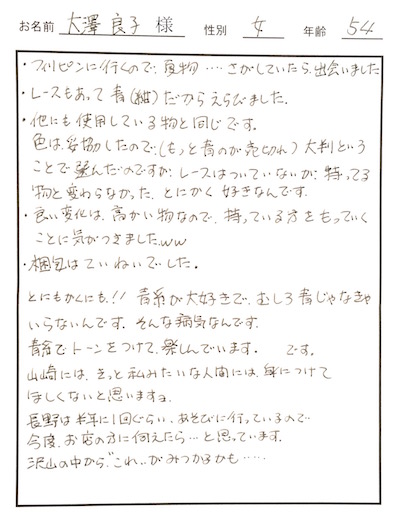 お名前 大澤 良子 様 性別 女 年齢 54
・フィリピンに行くので、夏物‥‥さがしていたら、出会いました
・レースもあって青（紺）だからえらびました。
・他にも使用している物と同じです。
色は、妥協したので、（もっと青のが売切れ）大判という
ことで選んだのですが、レースはついていないが、持ってる
物と変わらなかった、とにかく好きなんです。
・良い変化は、高かい物なので、持っている方をもっていく
ことに気がつきましたww
・梱包はていねいでした。
とにもかくにも!! 青系が大好きで、むしろ青じゃなきゃ
いらないんです。そんな病気なんです。
青系でトーンをつけて、楽しんでいます。 です。
山崎には、きっと私みたいな人間には、身につけて
ほしくないと思いますョ。
長野は半年に1回ぐらい、あそびに行っているので
今度、お店の方に伺えたら…と思っています。
沢山の中から、"これ"がみつかるかも‥‥‥